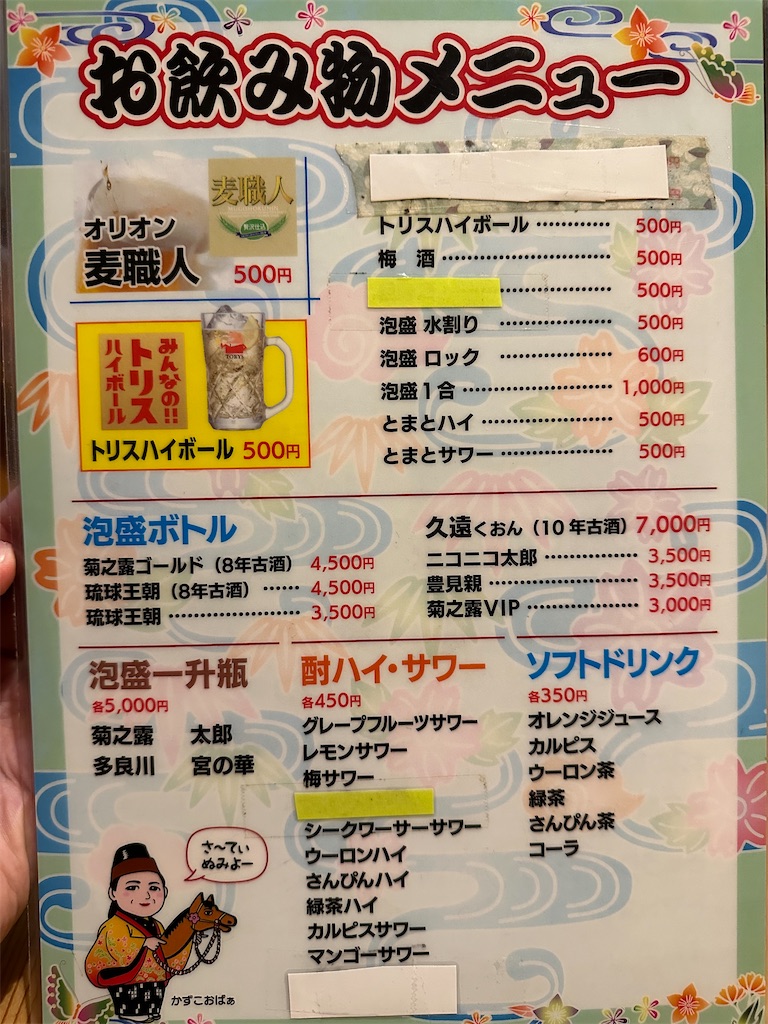 お飲み物メニュー
麦職人
贅沢仕込
オリオン
麦職人 500円
みんなの!!
トリス
ハイボール
TORYS
トリスハイボール 500円
トリスハイボール 500円
梅 酒 500円
500円
泡盛 水割り 500円
泡盛 ロック 600円
泡盛1合 1,000円
とまとハイ 500円
とまとサワー 500円
泡盛ボトル
菊之露ゴールド(8年古酒) 4,500円
琉球王朝(8年古酒) 4,500円
琉球王朝 3,500円
久遠くおん(10年古酒) 7,000円
ニコニコ太郎 3,500円
豊見親 3,500円
菊之露VIP 3,000円
泡盛一升瓶
各5,000円
菊之露 太郎
多良川 宮の華
酎ハイ・サワー
各450円
グレープフルーツサワー
レモンサワー
梅サワー
シークワーサーサワー
ウーロンハイ
さんぴんハイ
緑茶ハイ
カルピスサワー
マンゴーサワー
ソフトドリンク
各350円
オレンジジュース
カルピス
ウーロン茶
緑茶
さんぴん茶
コーラ
さ〜てぃ
ぬみよー
かずこおばぁ